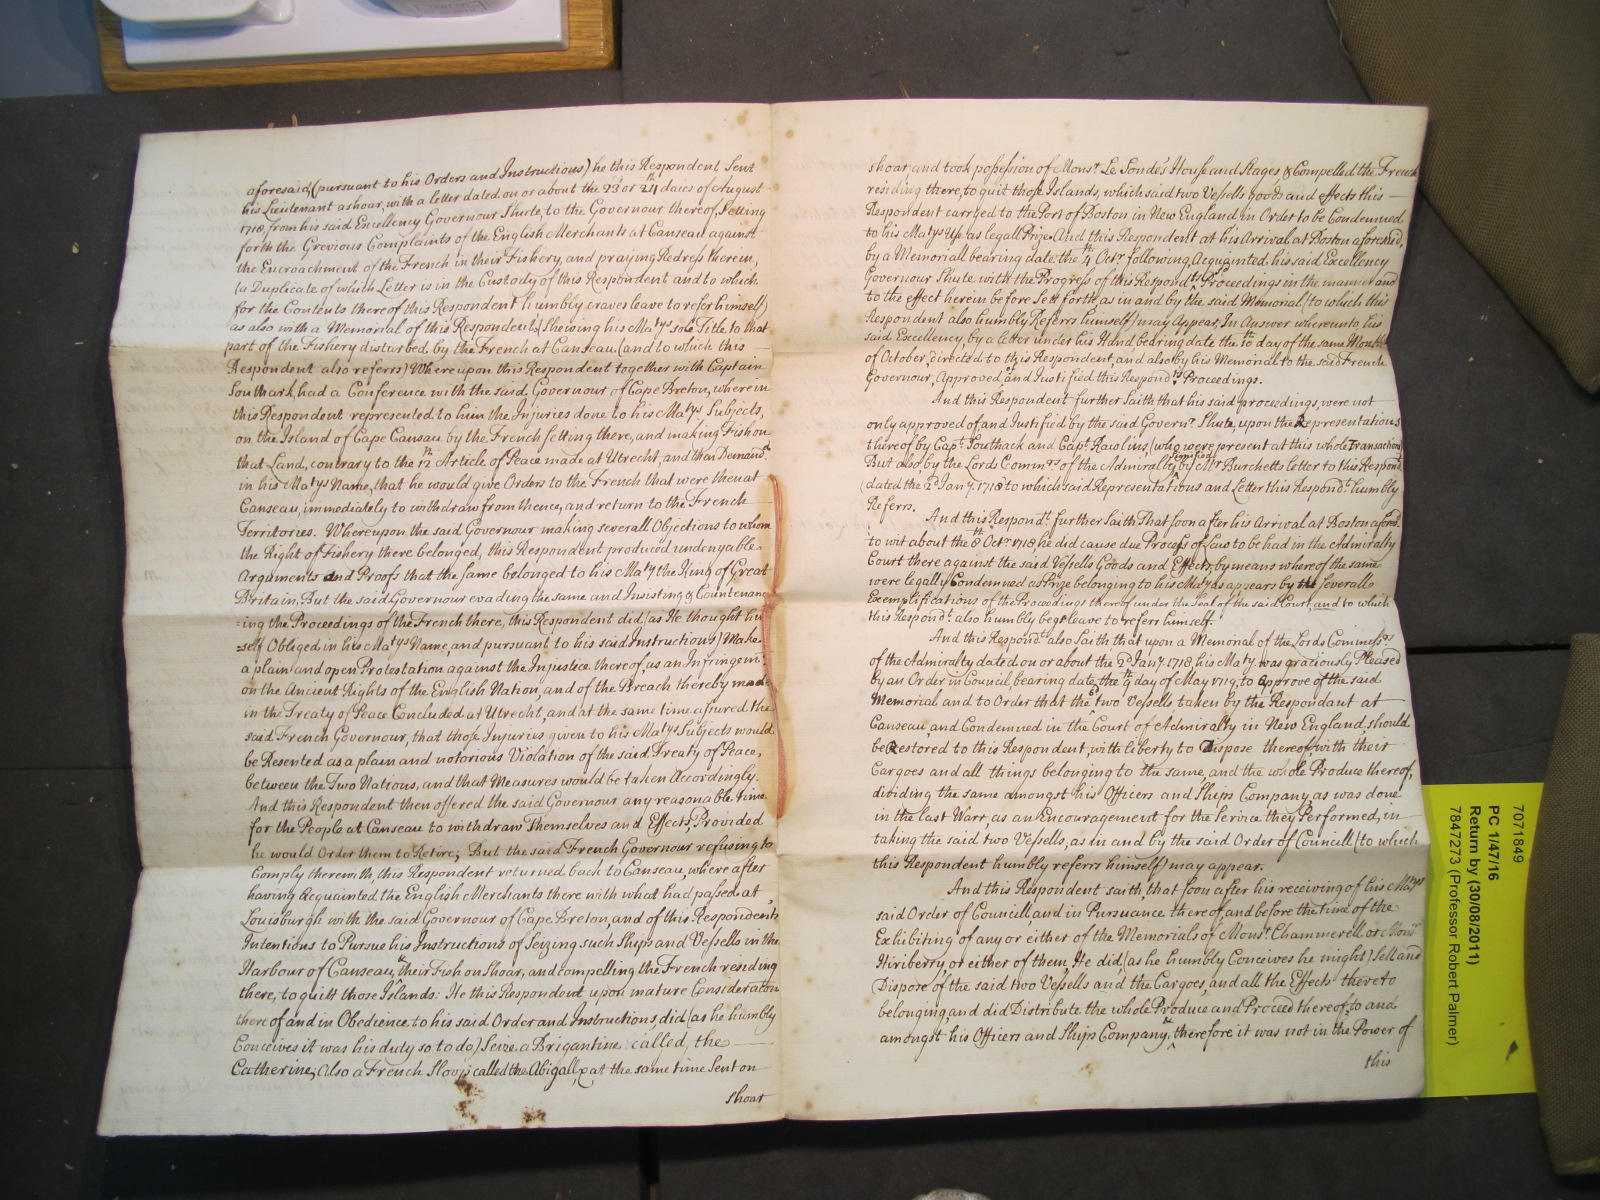 aforesaid, (pursuant to his Orders and Instructions) he this Respondent Sent
his Lieutenant ashoar, with a letter dated on or about the 23 or 24th daies of August
1718, from his said Excellency Governour Shute, to the Governour thereof, Setting
forth the Grevious Complaints of the English Merchants at Canseau against
the Encroachment of the French in their Fishery, and praying Redress therein,
(a Duplicate of which Letter is in the Custody of this Respondent and to which
for the Contents thereof this Respondent humbly craves leave to refer himself)
as also with a Memorial of this Respondents (Shewing his Matys sole Title to that
part of the Fishery disturbed by the French at Canseau (and to which this
Respondent also referrs) Whereupon this Respondent together with Captain
Southark, had a Conference with the said Governour of Cape Breton, wherein
this Respondent represented to him the Injuries done to his Matys Subjects,
on the Island of Cape Cansau by the French setting there, and making Fish on
that Land, contrary to the 12th Article of Peace made at Utrecht, and then Demandd
in his Matys Name, that he would give Orders to the French that were then at
Canseau, immediately to withdraw from thence, and return to the French
Territories. Whereupon the said Governour making severall Objections to whom
the Right of Fishery there belonged, this Respondent produced undenyable
Arguments and Proofs that the same belonged to his Maty the King of Great
Britain, But the said Governour evading the same and Insisting & Countenanc
=ing the Proceedings of the French there, this Respondent did (as He thought him
=self Obliged in his Matys Name, and pursuant to his said Instructions) Make
a plain and open Protestation against the Injustice thereof, as an Infringemt
on the Ancient Rights of the English Nation, and of the Breach thereby made
in the Treaty of Peace Concluded at Utrecht, and at the same time assured the
said French Governour, that those Injuries given to his Matys Subjects would
be Resented as a plain and notorious Violation of the said Treaty of Peace,
between the Two Nations, and that Measures would be taken Accordingly.
And this Respondent then offered the said Governour any reasonable time
for the People at Canseau to withdraw Themselves and Effects, Provided
he would Order them to Retire; But the said French Governour refusing to
Comply therewith, this Respondent returned back to Canseau, where after
having Acquainted the English Merchants there with what had passed at
Louisburgh with the said Governour of Cape Breton, and of this Respondents
Intentions to Pursue his Instructions of Seizing such Ships and Vessells in the
Harbour of Canseau, & their Fish on Shoar, and compelling the French residing
there, to quitt those Islands: He this Respondent upon mature Consideration
thereof and in Obedience to his said Order and Instructions, did (as he humbly
Conceives it was his duty so to do) Seize a Brigantine called, the
Catherine, Also a French Sloop called the Abigall, & at the same time Sent on
shoar
shoar and took possession of Monsr. Le Sonde's House and Stages & Compelled the French
residing there, to quit those Islands, which said two Vessells goods and effects this
Respondent carryed to the Port of Boston in New England in Order to be Condemned
to his Matys Use as legall Prize. And this Respondent at his Arrival at Boston aforesaid,
by a Memoriall bearing date the 4th Octr following, Acquainted his said Excellency
Governour Shute with the Progress of this Respondts Proceedings in the manner and
to the effect herein before Sett forth, as in and by the said Memorial (to which this
Respondent also humbly Referrs himself) may Appear, In Answer whereunto his
said Excellency, by a letter under his Hand bearing date the 10th day of the same Month
of October, directed to this Respondent, and also by his Memorial to the said French
Governour, Approved of and Justified this Respondts Proceedings.
And this Respondent further Saith that his said proceedings, were not
only approved of and Justified by the said Governr. Shute, upon the Representations
thereof by Capt. Southack and Capt. Rawlins, (who were present at this whole Transaction)
But also, by the Lords Commrs of the Admiralty signified by Mr Burchetts letter to this Respondt
(dated the 2d Jany. 1718 to which said Representations and Letter this Respondt. humbly
Referrs.
And this Respondt. further Saith That soon after his Arrival at Boston aforesd
to wit about the 8th Octr 1718, he did cause due Process of Law to be had in the Admiralty
Court there against the said Vessells Goods and Effects, by means whereof the same
were legally Condemned as Prize belonging to his Maty as appears by the severall
Exemplifications of the Proceedings thereof under the Seal of the said Court, and to which
this Respondt. also humbly begs leave to refers himself.
And this Respondt also Saith, that upon a Memorial of the Lords Commissrs
of the Admiralty dated on or about the 2d Jany. 1718, his Maty. was graciously Pleased
by an Order in Council, bearing date the 9th day of May 1719, to Approve of the said
Memorial and to Order that the sd two Vessells taken by the Respondant at
Canseau, and Condemned in the Court of Admiralty in New England, should
be Restored to this Respondent, with liberty to Dispose thereof, with their
Cargoes and all things belonging to the same, and the whole Produce thereof,
dividing the same amongst his Officers and Ships Company, as was done
in the last Warr, as an Encouragement for the Service they Performed, in
taking the said two Vessells, as in and by the said Order of Councill (to which
this Respondent humbly referrs himself) may appear.
And this Respondent saith, that soon after his receiving of his Matys
said Order of Councill, and in Pursuance thereof, and before the time of the
Exhibiting of any or either of the Memorials of Monsr. Chammerell or Monsr
Hiriberry, or either of them, He did, (as he humbly Conceives he might) Sell and
Dispose of the said two Vessells and the Cargoes, and all the Effects thereto
belonging, and did Distribute the whole Produce and Proceed thereof, to and
amongst his Officers and Ships Company, & therefore it was not in the Power of
this
7071849
PC 1/47/16
Return by (30/08/2011)
7847273 (Professor Robert Palmer)